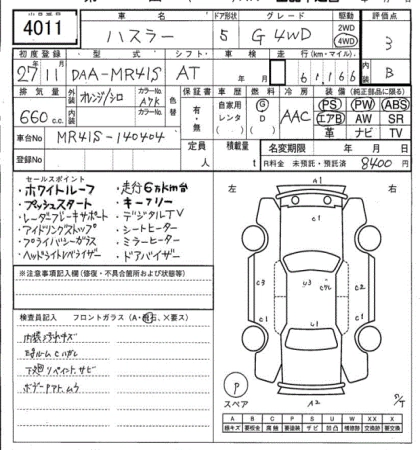 4011
車名 ドア形状 グレード 駆動 評価点
ハスラー 5 G 4WD 2WD 4WD 3
初度登録 型式 シフト 車検 走行(km・マイル) 内装
27年11月 DAA-MR41S AT 年 月 61,166 B
排気量 外装色 カラーNo. 内装色 カラーNo. 色替 保証書 車歴 燃料 冷房 装備(純正部品に限る)
660 c.c. オレンジ/シロ A7K 有・無 自家用 レンタ G D AAC PS PW ABS
エアB AW SR
革 ナビ TV
車台No MR41S-140404 定員 人 積載量 t 名変期限 年 月 日
登録No R料金 未預託・預託済 8400円
セールスポイント
・ホワイトルーフ ・走行6万km台
・プッシュスタート ・キーフリー
・レーダーブレーキサポート ・デジタルTV
・アイドリングストップ ・シートヒーター
・プライバシーガラス ・ミラーヒーター
・ヘッドライトレベライザー ・ドアバイザー
※注意事項記入欄(修復・不具合箇所および状態等)
検査員記入 フロントガラス(A・飛石、×要ス)
内装ヨゴレキズ
荷室ルームCハガレ
下廻リペイント、サビ
ボデーアト、ムラ
左 右
A1
C1
C1 C1
C3 U3 C2
U1
A2
P
スペア
A B C P S U W X XX
線キズ 要板金 腐蝕 要塗装 サビ 凹凸 補修跡 要交換 交換済